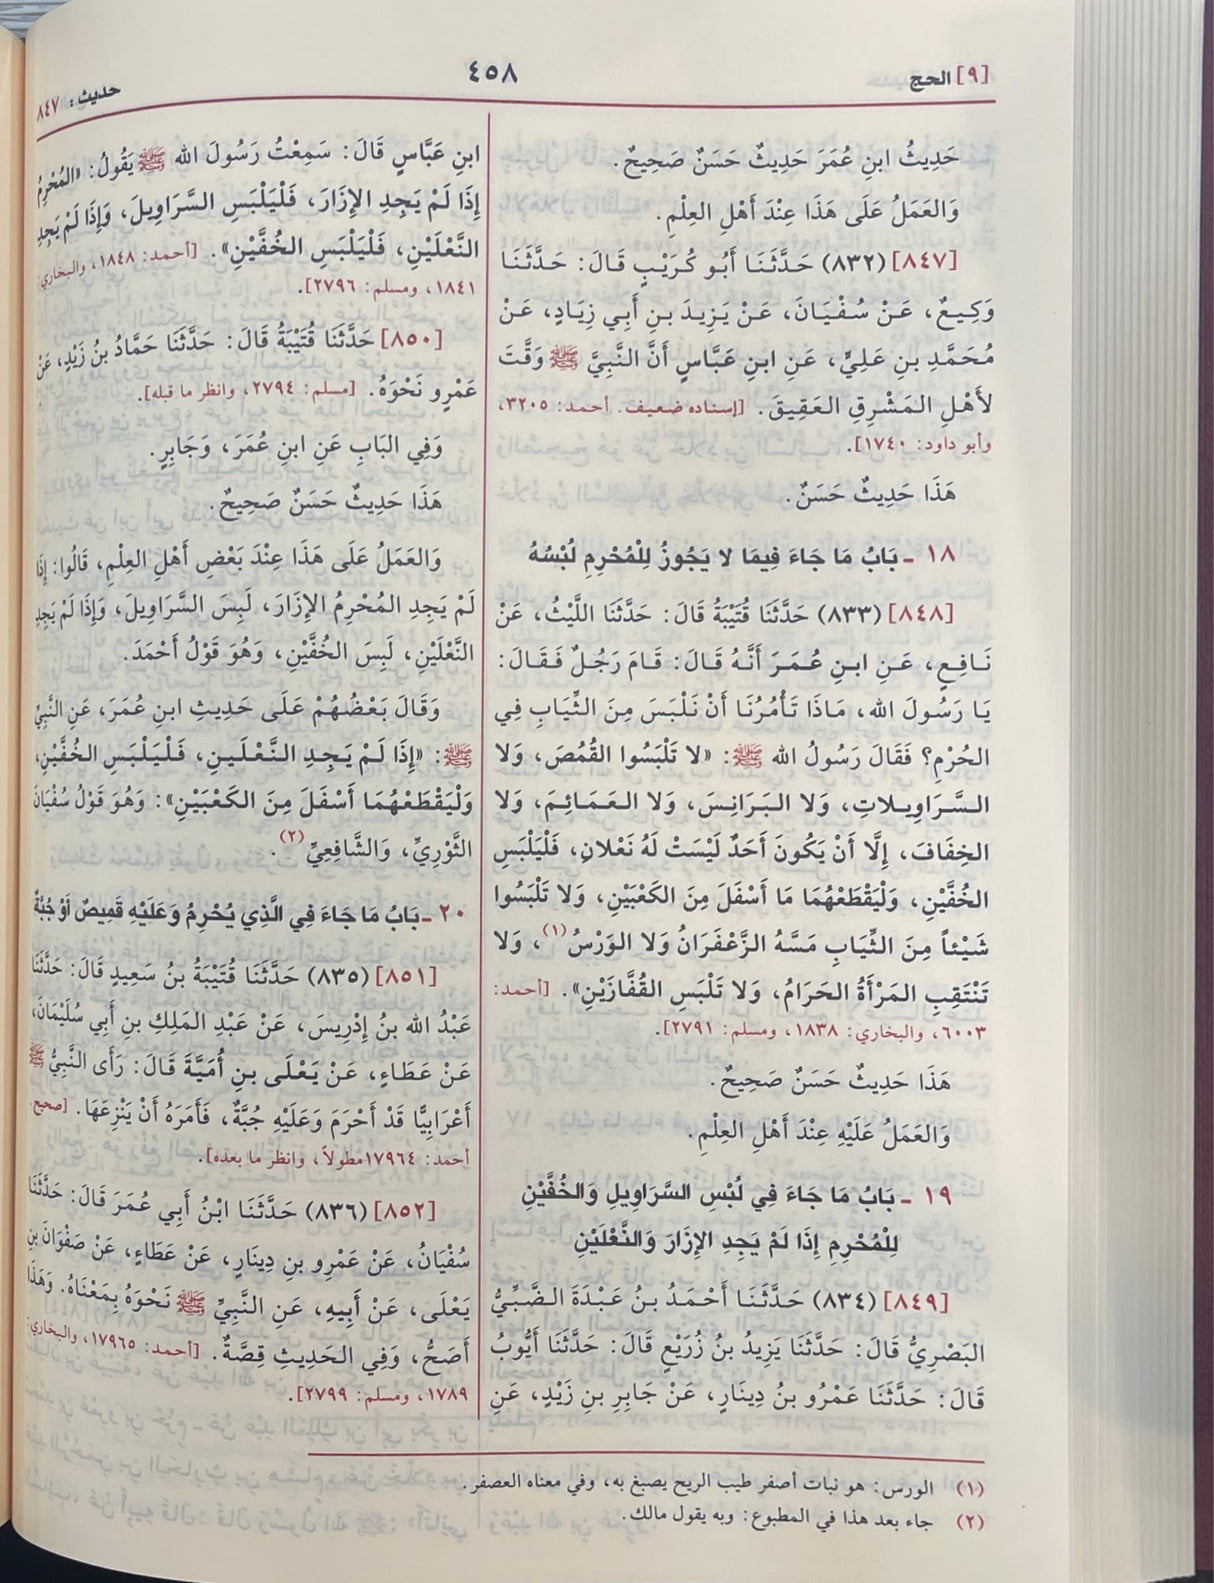 [٩] الحج
٤٥٨
حديث: ٨٤٧
حَدِيثُ ابنِ عُمَرَ حَدِيثٌ حَسَنٌ صَحِيحٌ.
وَالعَمَلُ عَلَى هَذَا عِنْدَ أَهْلِ العِلْمِ.
[٨٤٧] (٨٣٢) حَدَّثَنَا أَبُو كُرَيْبٍ قَالَ: حَدَّثَنَا
وَكِيعٌ، عَنْ سُفْيَانَ، عَنْ يَزِيدَ بنِ أَبِي زِيَادٍ، عَنْ
مُحَمَّدِ بنِ عَلِيٍّ، عَنِ ابنِ عَبَّاسٍ أَنَّ النَّبِيَّ ﷺ وَقَّتَ
لأَهْلِ المَشْرِقِ العَقِيقَ. [إسناده ضعيف. أحمد: ٣٢٠٥،
وأبو داود: ١٧٤٠].
هَذَا حَدِيثٌ حَسَنٌ.
١٨ ـ بَابُ مَا جَاءَ فِيمَا لا يَجُوزُ لِلْمُحْرِمِ لُبْسُهُ
[٨٤٨] (٨٣٣) حَدَّثَنَا قُتَيْبَةُ قَالَ: حَدَّثَنَا اللَّيْثُ، عَنْ
نَافِعٍ، عَنِ ابنِ عُمَرَ أَنَّهُ قَالَ: قَامَ رَجُلٌ فَقَالَ:
يَا رَسُولَ الله، مَاذَا تَأْمُرُنَا أَنْ نَلْبَسَ مِنَ الثِّيَابِ فِي
الحُرْمِ؟ فَقَالَ رَسُولُ الله ﷺ: «لا تَلْبَسُوا القُمُصَ، وَلا
السَّرَاوِيلاتِ، وَلا البَرَانِسَ، وَلا العَمَائِمَ، وَلا
الخِفَافَ، إِلَّا أَنْ يَكُونَ أَحَدٌ لَيْسَتْ لَهُ نَعْلانِ، فَلْيَلْبَسِ
الخُفَّيْنِ، وَلْيَقْطَعْهُمَا مَا أَسْفَلَ مِنَ الكَعْبَيْنِ، وَلا تَلْبَسُوا
شَيْئاً مِنَ الثِّيَابِ مَسَّهُ الزَّعْفَرَانُ وَلا الوَرْسُ(١)، وَلا
تَنْتَقِبِ المَرْأَةُ الحَرَامُ، وَلا تَلْبَسِ القُفَّازَيْنِ». [أحمد:
٦٠٠٣، والبخاري: ١٨٣٨، ومسلم: ٢٧٩١].
هَذَا حَدِيثٌ حَسَنٌ صَحِيحٌ.
وَالعَمَلُ عَلَيْهِ عِنْدَ أَهْلِ العِلْمِ.
١٩ ـ بَابُ مَا جَاءَ فِي لُبْسِ السَّرَاوِيلِ وَالخُفَّيْنِ
لِلْمُحْرِمِ إِذَا لَمْ يَجِدِ الإِزَارَ وَالنَّعْلَيْنِ
[٨٤٩] (٨٣٤) حَدَّثَنَا أَحْمَدُ بنُ عَبْدَةَ الضَّبِّيُّ
البَصْرِيُّ قَالَ: حَدَّثَنَا يَزِيدُ بنُ زُرَيْعٍ قَالَ: حَدَّثَنَا أَيُّوبُ
قَالَ: حَدَّثَنَا عَمْرُو بنُ دِينَارٍ، عَنْ جَابِرِ بنِ زَيْدٍ، عَنِ
ابنِ عَبَّاسٍ قَالَ: سَمِعْتُ رَسُولَ الله ﷺ يَقُولُ: «المُحْرِمُ
إِذَا لَمْ يَجِدِ الإِزَارَ، فَلْيَلْبَسِ السَّرَاوِيلَ، وَإِذَا لَمْ يَجِدِ
النَّعْلَيْنِ، فَلْيَلْبَسِ الخُفَّيْنِ». [أحمد: ١٨٤٨، والبخاري:
١٨٤١، ومسلم: ٢٧٩٦].
[٨٥٠] حَدَّثَنَا قُتَيْبَةُ قَالَ: حَدَّثَنَا حَمَّادُ بنُ زَيْدٍ، عَنْ
عَمْرٍو نَحْوَهُ. [مسلم: ٢٧٩٤، وانظر ما قبله].
وَفِي البَابِ عَنِ ابنِ عُمَرَ، وَجَابِرٍ.
هَذَا حَدِيثٌ حَسَنٌ صَحِيحٌ.
وَالعَمَلُ عَلَى هَذَا عِنْدَ بَعْضِ أَهْلِ العِلْمِ، قَالُوا: إِذَا
لَمْ يَجِدِ المُحْرِمُ الإِزَارَ، لَبِسَ السَّرَاوِيلَ، وَإِذَا لَمْ يَجِدِ
النَّعْلَيْنِ، لَبِسَ الخُفَّيْنِ، وَهُوَ قَوْلُ أَحْمَدَ.
وَقَالَ بَعْضُهُمْ عَلَى حَدِيثِ ابنِ عُمَرَ، عَنِ النَّبِيِّ
ﷺ: «إِذَا لَمْ يَجِدِ النَّعْلَينِ، فَلْيَلْبَسِ الخُفَّيْنِ،
وَلْيَقْطَعْهُمَا أَسْفَلَ مِنَ الكَعْبَيْنِ»: وَهُوَ قَوْلُ سُفْيَانَ
الثَّوْرِيِّ، وَالشَّافِعِيِّ(٢).
٢٠ ـ بَابُ مَا جَاءَ فِي الَّذِي يُحْرِمُ وَعَلَيْهِ قَمِيصٌ أَوْ جُبَّةٌ
[٨٥١] (٨٣٥) حَدَّثَنَا قُتَيْبَةُ بنُ سَعِيدٍ قَالَ: حَدَّثَنَا
عَبْدُ الله بنُ إِدْرِيسَ، عَنْ عَبْدِ المَلِكِ بنِ أَبِي سُلَيْمَانَ،
عَنْ عَطَاءٍ، عَنْ يَعْلَى بنِ أُمَيَّةَ قَالَ: رَأَى النَّبِيُّ ﷺ
أَعْرَابِيًّا قَدْ أَحْرَمَ وَعَلَيْهِ جُبَّةٌ، فَأَمَرَهُ أَنْ يَنْزِعَهَا. [صحيح.
أحمد: ١٧٩٦٤ مطولاً، وانظر ما بعده].
[٨٥٢] (٨٣٦) حَدَّثَنَا ابْنُ أَبِي عُمَرَ قَالَ: حَدَّثَنَا
سُفْيَانُ، عَنْ عَمْرِو بنِ دِينَارٍ، عَنْ عَطَاءٍ، عَنْ صَفْوَانَ بنِ
يَعْلَى، عَنْ أَبِيهِ، عَنِ النَّبِيِّ ﷺ نَحْوَهُ بِمَعْنَاهُ. وَهَذَا
أَصَحُّ، وَفِي الحَدِيثِ قِصَّةٌ. [أحمد: ١٧٩٦٥، والبخاري:
١٧٨٩، ومسلم: ٢٧٩٩].
(١) الورس: هو نبات أصفر طيب الريح يصبغ به، وفي معناه العصفر.
(٢) جاء بعد هذا في المطبوع: وبه يقول مالك.